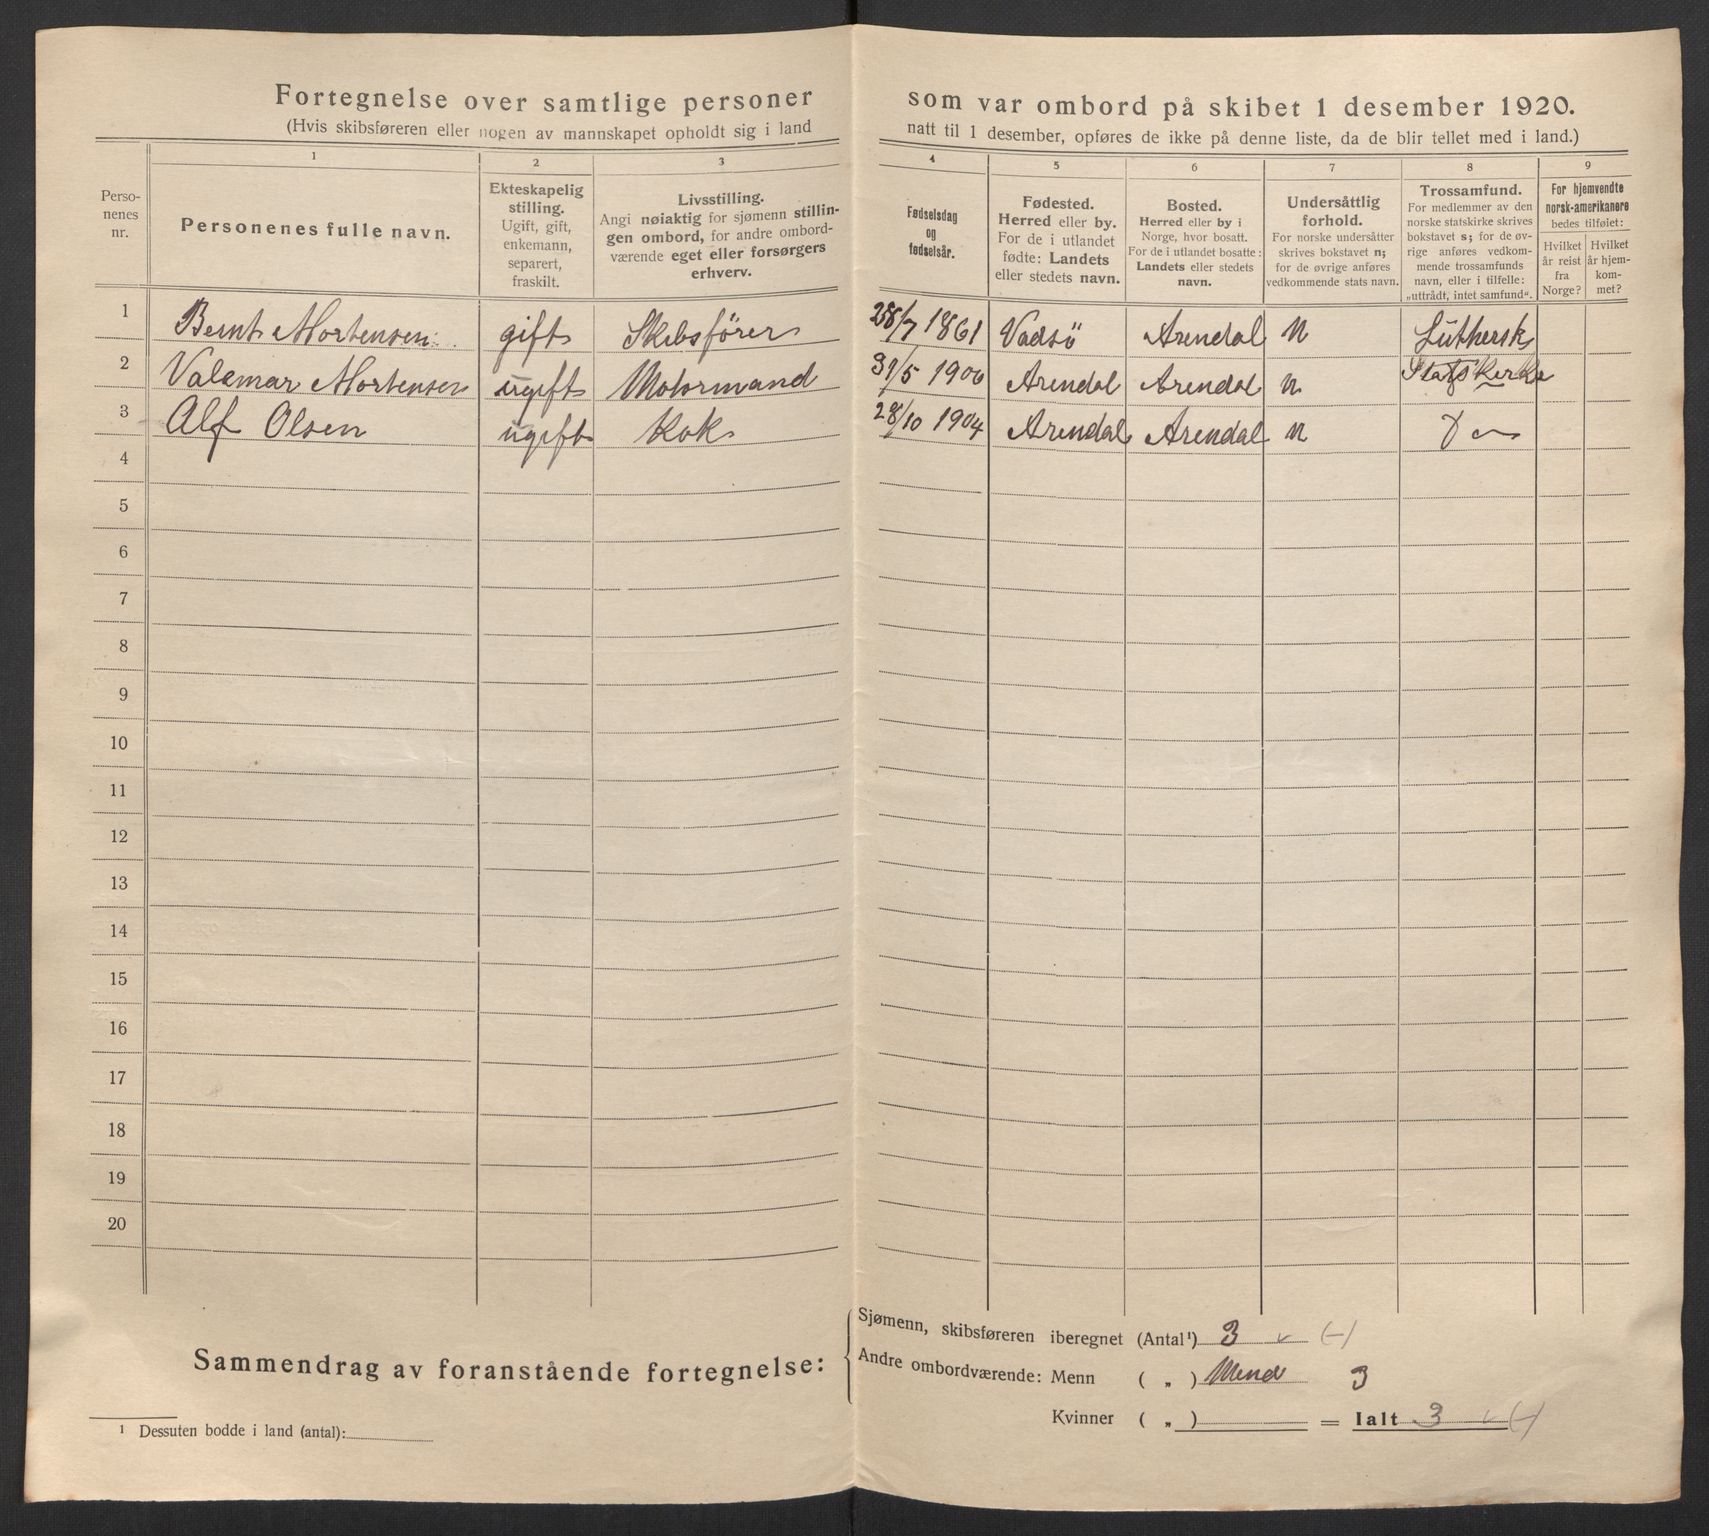 Fortegnelse over samtlige personer som var ombord på skibet 1 desember 1920.
(Hvis skibsføreren eller nogen av mannskapet opholdt sig i land natt til 1 desember, opføres de ikke på denne liste, da de blir tellet med i land.)
1 2 3 4 5 6 7 8 9
Perso-
nenes
nr.
Personenes fulle navn.
Ekteskapelig
stilling.
Ugift, gift,
enkemann,
separert,
fraskilt.
Livsstilling.
Angi nøiaktig for sjømenn stillin-
gen ombord, for andre ombord-
værende eget eller forsørgers
erhverv.
Fødselsdag
og
fødselsår.
Fødested.
Herred eller by.
For de i utlandet
fødte: Landets
eller stedets navn.
Bosted.
Herred eller by i
Norge, hvor bosatt.
For de i utlandet bosatte:
Landets eller stedets
navn.
Undersåttlig
forhold.
For norske undersåtter
skrives bokstavet n;
for de øvrige anføres
vedkommende stats navn.
Trossamfund.
For medlemmer av den
norske statskirke skrives
bokstavet s; for de øv-
rige anføres vedkom-
mende trossamfunds
navn, eller i tilfelle:
„uttrådt, intet samfund".
For hjemvendte
norsk-amerikanere
bedes tilføiet:
Hvilket
år reist
fra
Norge?
Hvilket
år hjem-
kom-
met?
1 Bernt Mortensen gift Skibsförer 28/7 1861 Vadsö Arendal N Luthersk
2 Valemar Mortensen ugift Motormand 31/5 1900 Arendal Arendal N Statskerke
3 Alf Olsen ugift Kok 28/10 1904 Arendal Arendal N
4
5
6
7
8
9
10
11
12
13
14
15
16
17
18
19
20
Sammendrag av foranstående fortegnelse:
Sjømenn, skibsføreren iberegnet (Antal¹) 3 (-)
Andre ombordværende: Menn ( „ ) Mend 3
Kvinner ( „ ) = Ialt 3 (-)
¹ Dessuten bodde i land (antal):